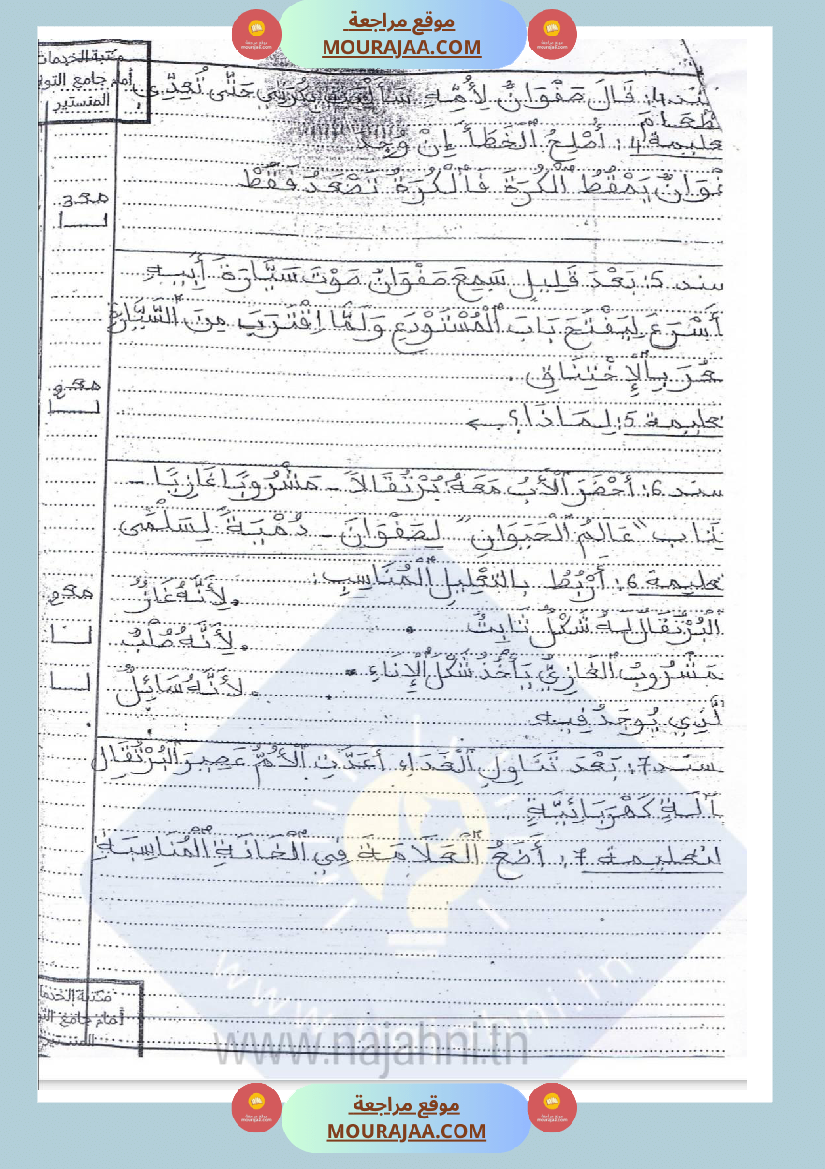 موقع مراجعة
MOURAJAA.COM
مكتبة الخدمات
أمام جامع التو
المنستير
سند 4: قَالَ صَفْوَانُ لِأُمِّهِ سَأَلْعَبُ بِكُرَتِي حَتَّى تُعِدِّي
الطَّعَامَ
تعليمة 4: أُصْلِحُ الْخَطَأَ إِنْ وُجِدَ
صَفْوَانُ يَمْقُطُ الْكُرَةَ فَالْكُرَةُ تَصْعَدُ فَقَطْ
معـ 3
سند 5: بَعْدَ قَلِيلٍ سَمِعَ صَفْوَانُ صَوْتَ سَيَّارَةَ أَبِيهِ
أَسْرَعَ لِيَفْتَحَ بَابَ الْمُسْتَوْدَعِ وَلَمَّا اقْتَرَبَ مِنَ السَّيَّارَةِ
شَعُرَ بِالْإِخْتِنَاقِ.
تعليمة 5: لِمَاذَا؟ ←
سند 6: أَحْضَرَ الْأَبُ مَعَهُ بُرْتُقَالاً - مَشْرُوبًا غَازِيًّا -
كِتَاب "عَالَمُ الْحَيَوَانِ" لِصَفْوَانَ - دُمْيَةً لِسَلْمَى
تعليمة 6: أَرْبُطُ بِالتَّعْلِيلِ الْمُنَاسِبِ:
. لِأَنَّهُ غَازٌ
الْبُرْتُقَالُ لَهُ شَكْلٌ ثَابِتٌ .
. لِأَنَّهُ صُلْبٌ
مَشْرُوبُ الْغَازِيُّ يَأْخُذُ شَكْلَ الْإِنَاءِ .
. لِأَنَّهُ سَائِلٌ
الَّذِي يُوجَدُ فِيهِ
سند 7: بَعْدَ تَنَاوُلِ الْغَدَاءِ أَعَدَّتِ الْأُمُّ عَصِيرَ الْبُرْتُقَالِ
بِآلَةٍ كَهْرَبَائِيَّةٍ
التعليمة 7: أَضَعُ الْعَلَامَةَ فِي الْخَانَةِ الْمُنَاسِبَةِ
مكتبة الخدما
أمام جامع التو
المنستير
www.najahni.tn
www.najahni.tn
موقع مراجعة
MOURAJAA.COM